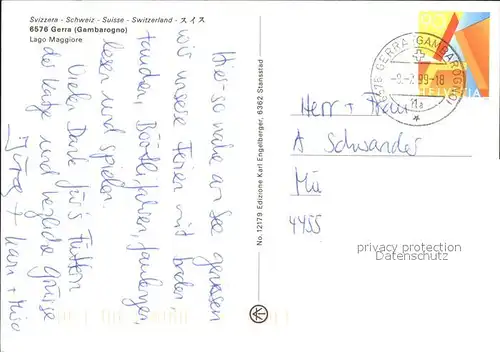 Svizzera - Schweiz - Suisse - Switzerland - スイス
6576 Gerra (Gambarogno)
Lago Maggiore
Hier so nahe am See geniessen
wir unsere Ferien mit baden
tauchen, Böötlifahren, faulenzen,
lesen und spielen.
Vielen Dank für's Füttern
der Katze und herzliche Grüsse
No. 12179 Edizione Karl Engelberger, 6362 Stansstad
6576 GERRA (GAMBAROGNO)
99-18
11a
HELVETIA
Herr + Frau
A Schwander
4455
privacy protection
watermark (AKpool.de)